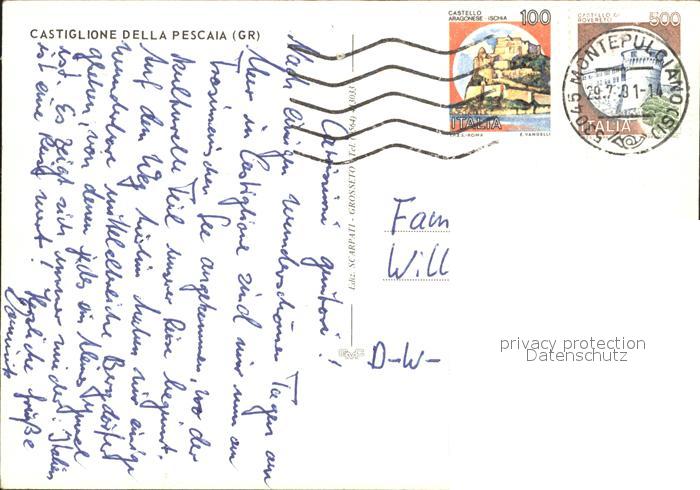 CASTIGLIONE DELLA PESCAIA (GR)
Carissimi genitori!
Nach einigen wunderschönen Tagen am
Meer in Castiglione sind wir nun am
Trasimenischen See angekommen, wo der
kulturelle Teil unserer Reise beginnt.
Auf dem Weg hierhin haben wir einige
wunderbare mittelalterliche Bergdörfer
gesehen, von denen jedes ein kleines Juwel
ist. Es zeigt sich immer wieder: Italien
ist eine Reise wert! Herzliche Grüße
Dominik
GROSSETO
CASTELLO
ARAGONESE - ISCHIA
100
ITALIA
I.P.Z.S. - ROMA
E. VANGELLI
CASTELLO DI
ROVERETO
500
ITALIA
53045 MONTEPULCIANO (SI)
29.7.91-14
Fam
Will
D-W-
privacy protection
Datenschutz